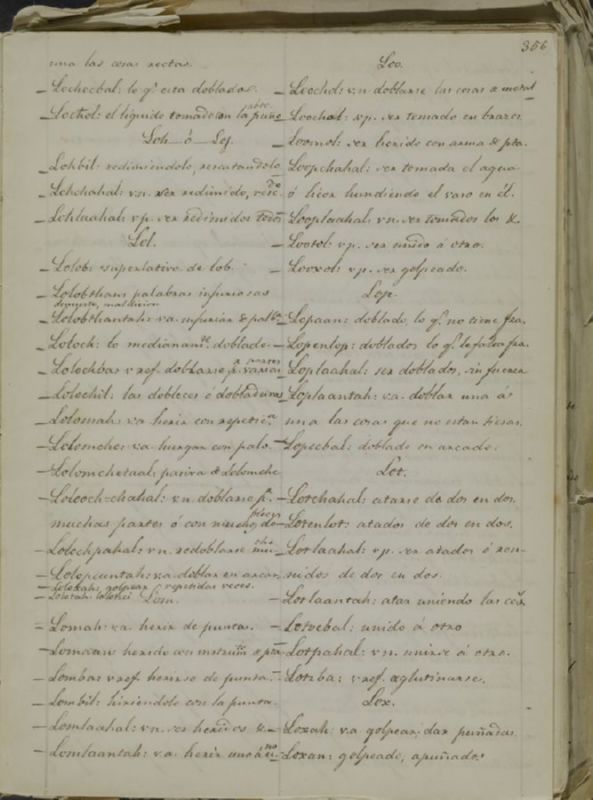 356
una las cosas rectas.
Lochecbal: lo q.e esta doblado.
Lochol: el liquido tomado con la
Loh ó Loj.
Lohbil: redimiendolo, rescatandolo
Lohchahal: v.n. ser redimido,
Lohlaahal: v.p. ser redimidos todos
Lol.
Lolob: superlativo de lob.
Lolobthan: palabras injuriosas
Lolobthantah: v.a. injuriar
Loloch: lo medianam.te doblado
Lolochbas v. ref. doblarse p.r varias partes
Lolochil: los dobleces ó dobladuras
Lolomah: v.a. herir con repetic.n
Lolomche: v.a. hurgar con palo.
Lolomchetaal: pasiva de Lolomche
Loloch=chahal: v.n. doblarse p.r
muchas partes ó con
Lolochpahal: v.n. redoblarse
v.a. doblar en
golpear repetidas veces.
Lom.
Lomah: v.a. herir de punta.
Lomaan: herido con instrum.to
Lombas v. ref. herirse de punta.
Lombil: hiriendolo con la punta.
Lomlaahal: v.n. ser heridos &.
Lomlaantah: v.a. herir
Loo.
Loochol: v.n. doblarse las cosas
Loochol: v.p. ser tomado en brazos
Loomol: ser herido con arma
Loopchahal: ser tomada el agua
ó licor hundiendo el vaso en él.
Looplaahal: v.n. ser tomados los &.
Lootol: v.p. ser unido á otro.
Looxol: v.p. ser golpeado.
Lop.
Lopaan: doblado, lo q.e no tiene fza.
Lopenlop: doblados lo q.e le falta fza.
Loplaahal: ser doblados, sin fuerza
Loplaantah: v.a. doblar una á
una las cosas que no estan tiesas.
Lopecbal: doblado en arcado.
Lot.
Lotchahal: atarse de dos en dos.
Lotenlot: atados de dos en dos.
Lotlaahal: v.p. ser atados ó reu-
nidos de dos en dos.
Lotlaantah: atar uniendo las
Lotocbal: unido á otro
Lotpahal: v.n. unirse á otro.
Lotzba: v. ref. aglutinarse.
Lox.
Loxah: v.a. golpear, dar puñadas
Loxan: golpeado, apuñado.